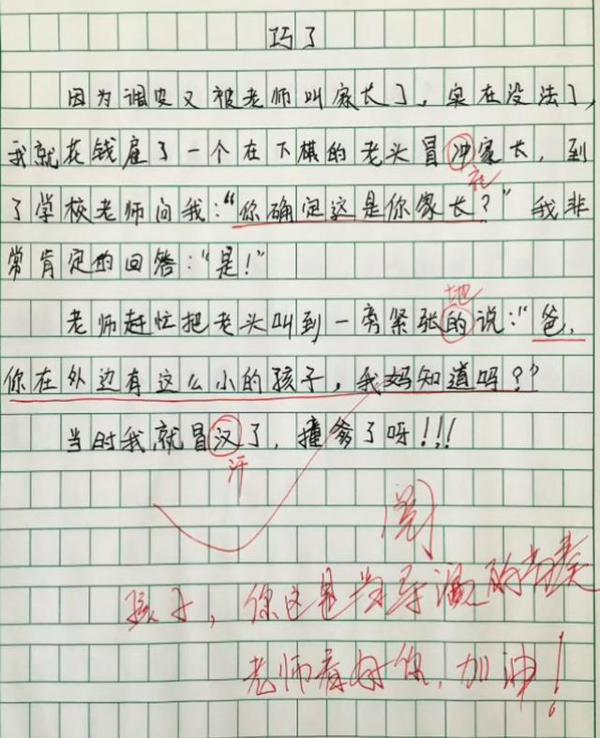 巧了
因为调皮又被老师叫家长了，实在没法了，
我就花钱雇了一个在下棋的老头冒冲家长，到
充
了学校老师问我：“你确定这是你家长？”我非
常肯定的回答：“是！”
地
老师赶忙把老头叫到一旁紧张的说：“爸，
你在外边有这么小的孩子，我妈知道吗？”
当时我就冒汉了，撞爹了呀！！！
汗
阅
孩子，你这是当导演的节奏
老师看好你，加油！